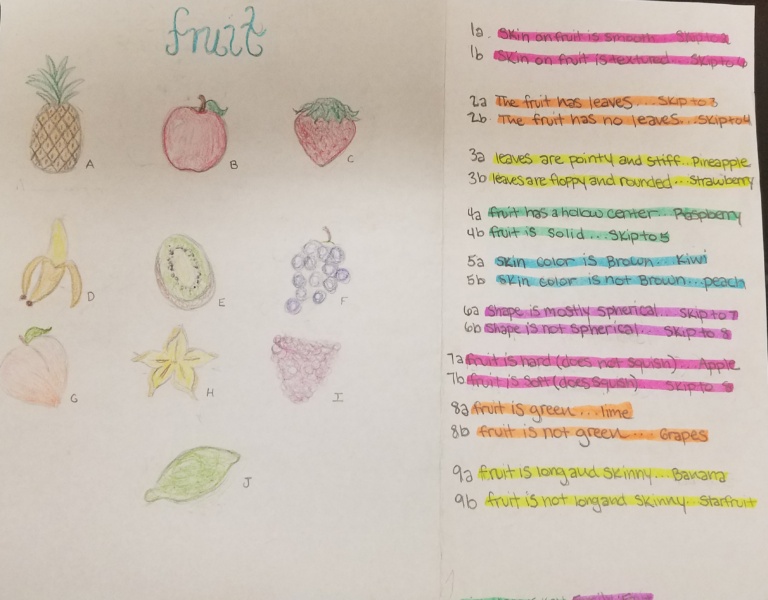 fruit
A
B
C
D
E
F
G
H
I
J
1a. Skin on fruit is smooth... Skip to
1b Skin on fruit is textured... Skip to
2a The fruit has leaves.... Skip to 3
2b The fruit has no leaves... Skip to 4
3a leaves are pointy and stiff... Pineapple
3b leaves are floppy and rounded... Strawberry
4a fruit has a hollow center... Raspberry
4b fruit is Solid... Skip to 5
5a skin color is Brown... Kiwi
5b skin color is not Brown... peach
6a Shape is mostly spherical... Skip to 7
6b Shape is not spherical... Skip to 8
7a fruit is hard (does not squish)... Apple
7b fruit is Soft (does squish) Skip to
8a fruit is green... lime
8b fruit is not green.... Grapes
9a fruit is long and skinny... Banana
9b fruit is not long and skinny.. Starfruit